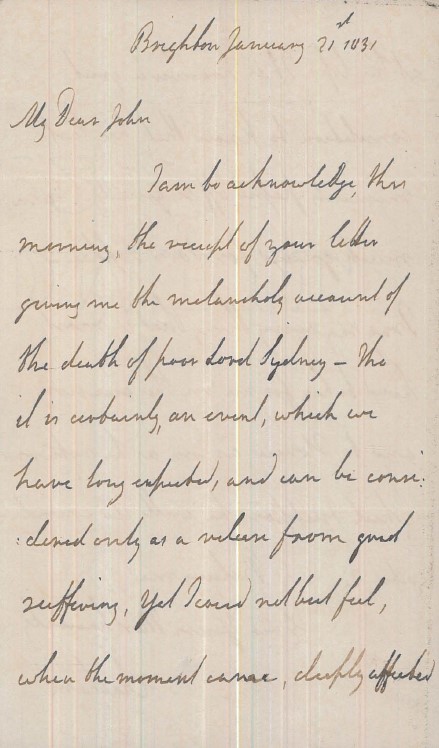 Brighton January 21st 1831
My Dear John
I am to acknowledge, this
morning, the receipt of your letter
giving me the melancholy account of
the death of poor Lord Sydney – Tho
it is certainly, an event, which we
have long expected, and can be consi:
:dered only as a release from great
suffering, yet I could not but feel,
when the moment came, deeply affected